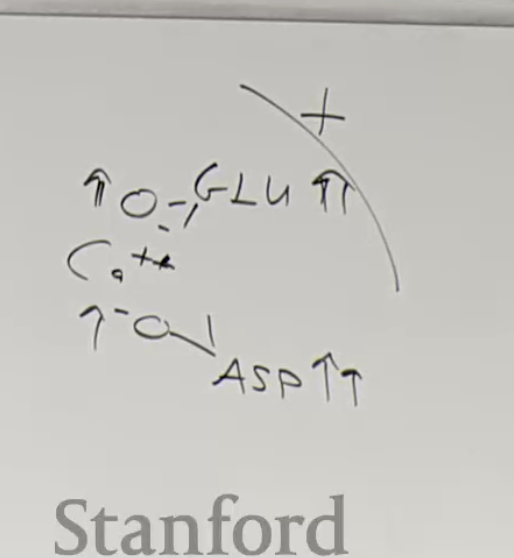 +
↑ O - GLU ↑↑
Ca++
↑ -O ASP ↑↑
Stanford